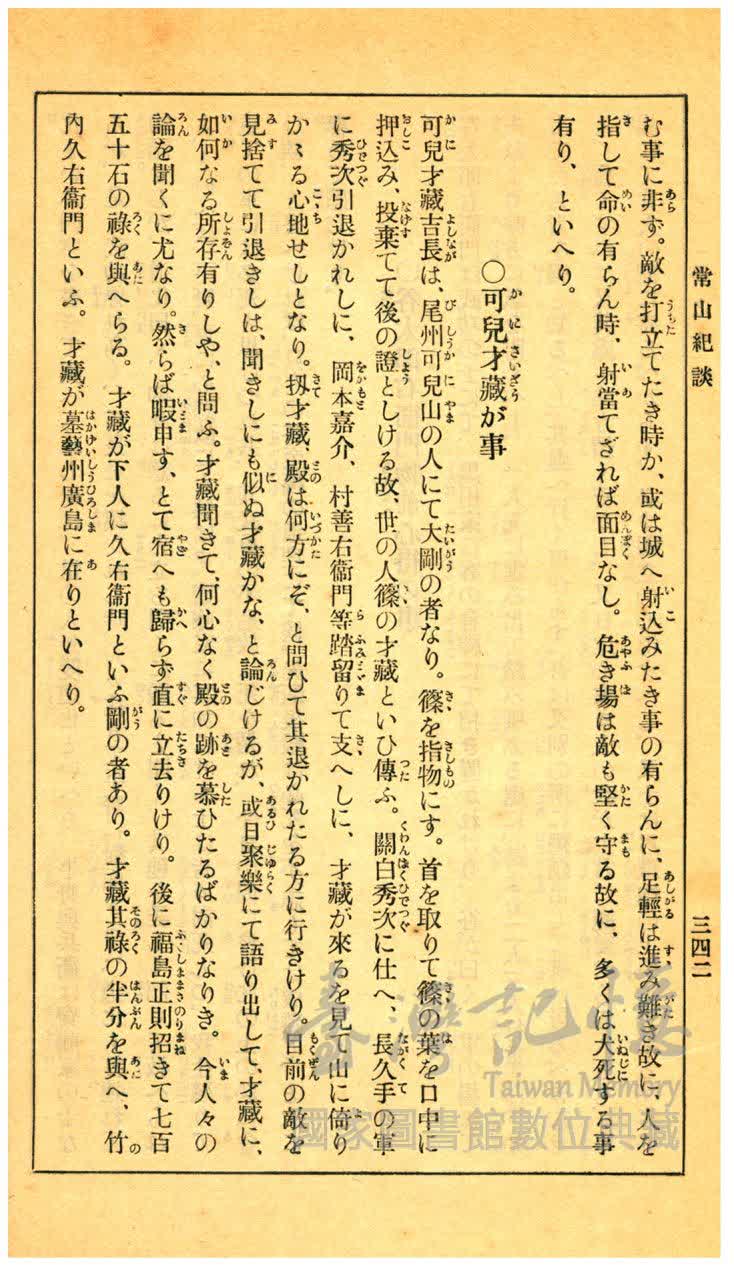 常山紀談
三四二
む事に非ず。敵を打立てたき時か、或は城へ射込みたき事の有らんに、足輕は進み難き故に、人を
指して命の有らん時、射當てざれば面目なし。危き場は敵も堅く守る故に、多くは犬死する事
有り、といへり。
〇可兒才藏が事
可兒才藏吉長は、尾州可兒山の人にて大剛の者なり。篠を指物にす。首を取りて篠の葉を口中に
押込み、投棄てて後の證としける故、世の人篠の才藏といひ傳ふ。關白秀次に仕へ、長久手の軍
に秀次引退かれしに、岡本嘉介、村善右衞門等踏留りて支へしに、才藏が來るを見て山に倚り
かゝる心地せしとなり。扨才藏、殿は何方にぞ、と問ひて其退かれたる方に行きけり。目前の敵を
見捨てて引退きしは、聞きしにも似ぬ才藏かな、と論じけるが、或日聚樂にて語り出して、才藏に、
如何なる所存有りしや、と問ふ。才藏聞きて、何心なく殿の跡を慕ひたるばかりなりき。今人々の
論を聞くに尤なり。然らば暇申す、とて宿へも歸らず直に立去りけり。後に福島正則招きて七百
五十石の祿を與へらる。才藏が下人に久右衞門といふ剛の者あり。才藏其祿の半分を與へ、竹
內久右衞門といふ。才藏が墓藝州廣島に在りといへり。
臺灣記憶
Taiwan Memory
國家圖書館數位典藏